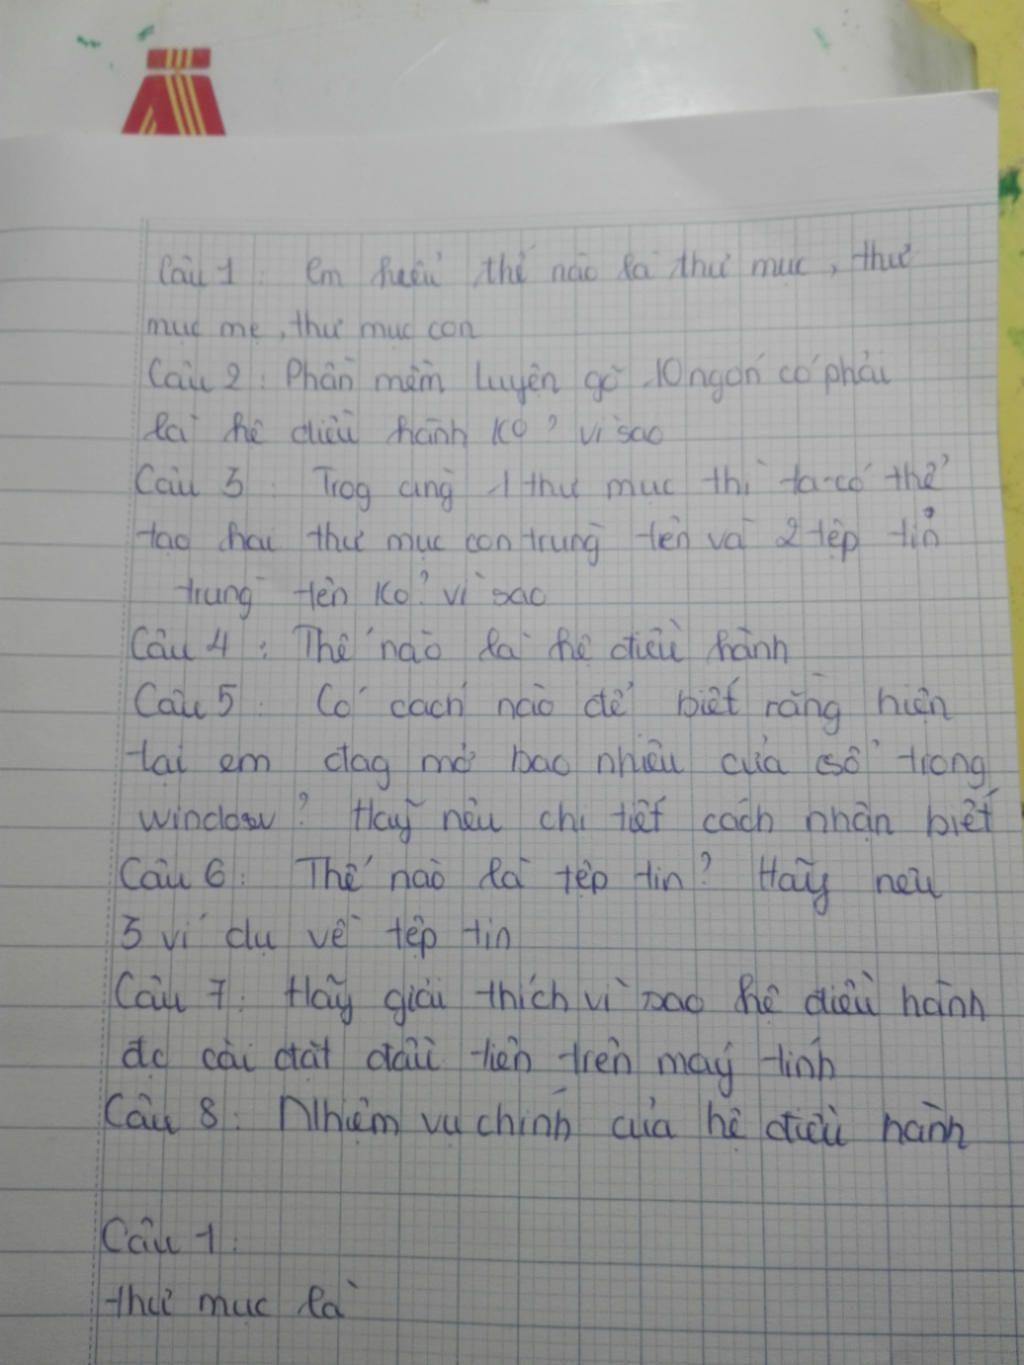 Câu 1: Em hiểu thế nào là thư mục, thư
mục mẹ, thư mục con
Câu 2: Phần mềm luyện gõ 10 ngón có phải
là hệ điều hành ko? vì sao
Câu 3: Trog cùng 1 thư mục thì ta có thể
tạo hai thư mục con trùng tên và 2 tệp tin
trùng tên ko? vì sao
Câu 4: Thế nào là hệ điều hành
Câu 5: Có cách nào để biết rằng hiện
tại em đag mở bao nhiêu cửa sổ trong
window? Hãy nêu chi tiết cách nhận biết
Câu 6: Thế nào là tệp tin? Hãy nêu
3 ví dụ về tệp tin
Câu 7: Hãy giải thích vì sao hệ điều hành
đc cài đặt đầu tiên trên máy tính
Câu 8: Nhiệm vụ chính của hệ điều hành
Câu 1:
thư mục là